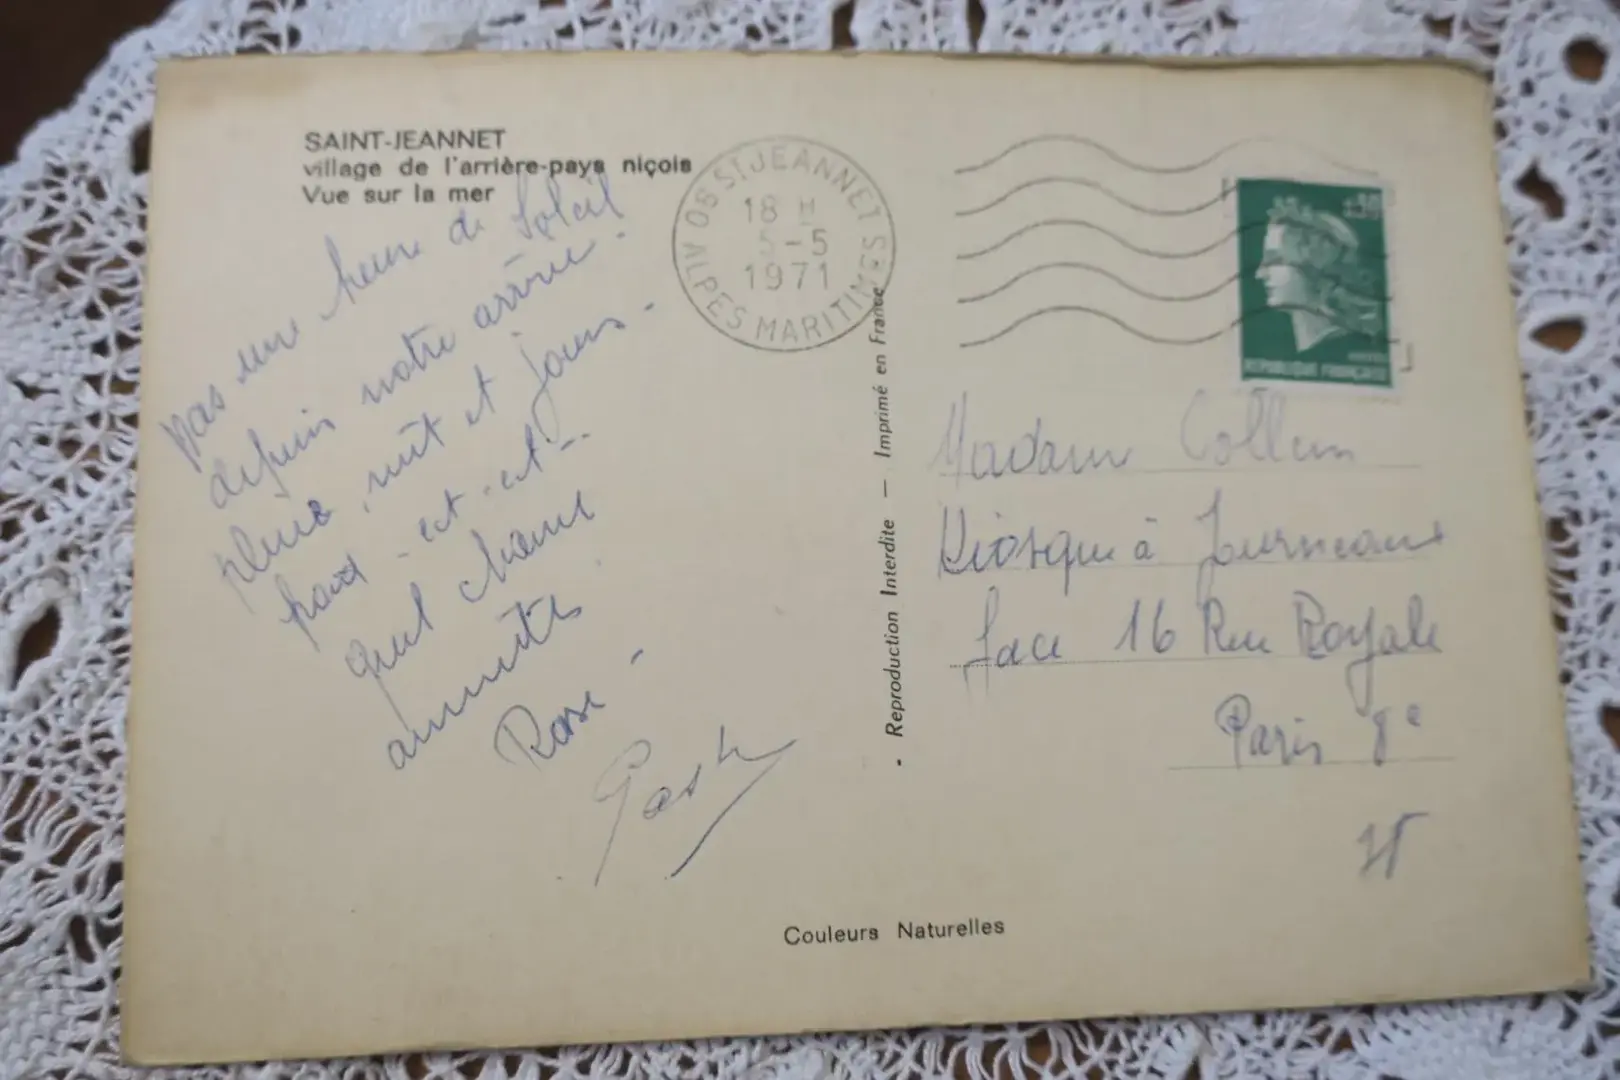 SAINT-JEANNET
village de l'arrière-pays niçois
Vue sur la mer
pas une heure de Soleil
depuis notre arrivée.
pluie, nuit et jours.
quel
amitiés
Rose -
06 ST JEANNET
18 H
5-5
1971
ALPES MARITIMES
- Reproduction Interdite — Imprimé en France
0,30
REPUBLIQUE FRANÇAISE
Madame
Kiosque à Journeaux
face 16 Rue Royale
Paris 8e
75
Couleurs Naturelles